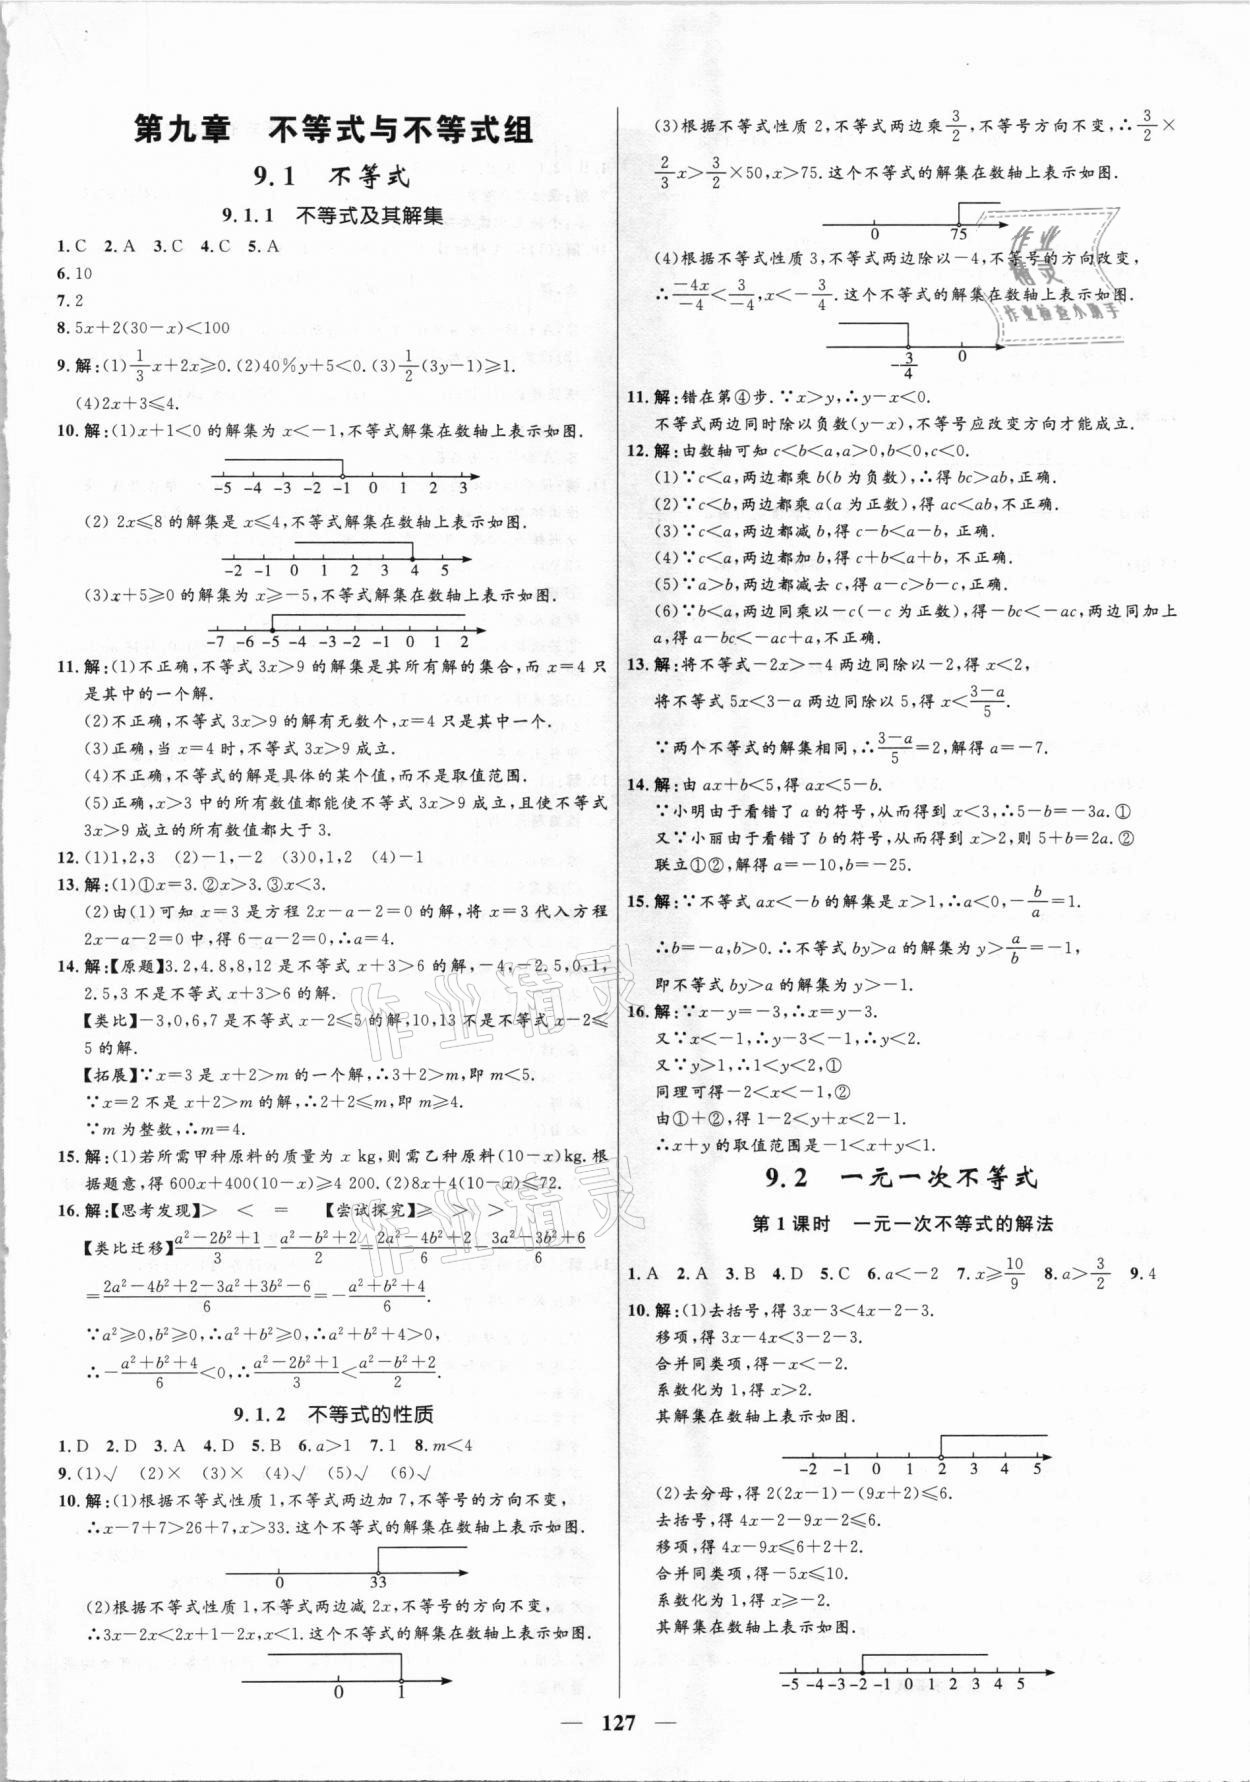 第九章 不等式与不等式组
9.1 不等式
9.1.1 不等式及其解集
1.C 2.A 3.C 4.C 5.A
6.10
7.2
8.5x+2(30-x)<100
9.解:(1)1/3x+2x≥0.(2)40%y+5<0.(3)1/2(3y-1)≥1.
(4)2x+3≤4.
10.解:(1)x+1<0的解集为x<-1,不等式解集在数轴上表示如图.
-5 -4 -3 -2 -1 0 1 2 3
(2) 2x≤8的解集是x≤4,不等式解集在数轴上表示如图.
-2 -1 0 1 2 3 4 5
(3)x+5≥0的解集为x≥-5,不等式解集在数轴上表示如图.
-7 -6 -5 -4 -3 -2 -1 0 1 2
11.解:(1)不正确,不等式3x>9的解集是其所有解的集合,而x=4只
是其中的一个解.
(2)不正确,不等式3x>9的解有无数个,x=4只是其中一个.
(3)正确,当x=4时,不等式3x>9成立.
(4)不正确,不等式的解是具体的某个值,而不是取值范围.
(5)正确,x>3中的所有数值都能使不等式3x>9成立,且使不等式
3x>9成立的所有数值都大于3.
12.(1)1,2,3 (2)-1,-2 (3)0,1,2 (4)-1
13.解:(1)①x=3.②x>3.③x<3.
(2)由(1)可知x=3是方程2x-a-2=0的解,将x=3代入方程
2x-a-2=0中,得6-a-2=0,∴a=4.
14.解:【原题】3.2,4.8,8,12是不等式x+3>6的解,-4,-2.5,0,1,
2.5,3不是不等式x+3>6的解.
【类比】-3,0,6,7是不等式x-2≤5的解,10,13不是不等式x-2≤
5的解.
【拓展】∵x=3是x+2>m的一个解,∴3+2>m,即m<5.
∵x=2不是x+2>m的解,∴2+2≤m,即m≥4.
∵m为整数,∴m=4.
15.解:(1)若所需甲种原料的质量为x kg,则需乙种原料(10-x)kg.根
据题意,得600x+400(10-x)≥4 200.(2)8x+4(10-x)≤72.
16.解:【思考发现】> < = 【尝试探究】≥ > >
【类比迁移】(a²-2b²+1)/3-(a²-b²+2)/2=(2a²-4b²+2)/6-(3a²-3b²+6)/6
=(2a²-4b²+2-3a²+3b²-6)/6=-(a²+b²+4)/6.
∵a²≥0,b²≥0,∴a²+b²≥0,∴a²+b²+4>0,
∴-(a²+b²+4)/6<0,∴(a²-2b²+1)/3<(a²-b²+2)/2.
9.1.2 不等式的性质
1.D 2.D 3.A 4.D 5.B 6.a>1 7.1 8.m<4
9.(1)√ (2)× (3)× (4)√ (5)√ (6)√
10.解:(1)根据不等式性质1,不等式两边加7,不等号的方向不变,
∴x-7+7>26+7,x>33.这个不等式的解集在数轴上表示如图.
0 33
(2)根据不等式性质1,不等式两边减2x,不等号的方向不变,
∴3x-2x<2x+1-2x,x<1.这个不等式的解集在数轴上表示如图.
0 1
(3)根据不等式性质2,不等式两边乘3/2,不等号方向不变,∴3/2×
2/3x>3/2×50,x>75.这个不等式的解集在数轴上表示如图.
0 75
(4)根据不等式性质3,不等式两边除以-4,不等号的方向改变,
∴-4x/-4<3/-4,x<-3/4.这个不等式的解集在数轴上表示如图.
-3/4 0
11.解:错在第④步.∵x>y,∴y-x<0.
不等式两边同时除以负数(y-x),不等号应改变方向才能成立.
12.解:由数轴可知c<b<a,a>0,b<0,c<0.
(1)∵c<a,两边都乘b(b为负数),∴得bc>ab,正确.
(2)∵c<b,两边都乘a(a为正数),得ac<ab,不正确.
(3)∵c<a,两边都减b,得c-b<a-b,正确.
(4)∵c<a,两边都加b,得c+b<a+b,不正确.
(5)∵a>b,两边都减去c,得a-c>b-c,正确.
(6)∵b<a,两边同乘以-c(-c为正数),得-bc<-ac,两边同加上
a,得a-bc<-ac+a,不正确.
13.解:将不等式-2x>-4两边同除以-2,得x<2,
将不等式5x<3-a两边同除以5,得x<(3-a)/5.
∵两个不等式的解集相同,∴(3-a)/5=2,解得a=-7.
14.解:由ax+b<5,得ax<5-b.
∵小明由于看错了a的符号,从而得到x<3,∴5-b=-3a.①
又∵小丽由于看错了b的符号,从而得到x>2,则5+b=2a.②
联立①②,解得a=-10,b=-25.
15.解:∵不等式ax<-b的解集是x>1,∴a<0,-b/a=1.
∴b=-a,b>0.∴不等式by>a的解集为y>a/b=-1,
即不等式by>a的解集为y>-1.
16.解:∵x-y=-3,∴x=y-3.
又∵x<-1,∴y-3<-1,∴y<2.
又∵y>1,∴1<y<2,①
同理可得-2<x<-1,②
由①+②,得1-2<y+x<2-1.
∴x+y的取值范围是-1<x+y<1.
9.2 一元一次不等式
第1课时 一元一次不等式的解法
1.A 2.A 3.B 4.D 5.C 6.a<-2 7.x≥10/9 8.a>3/2 9.4
10.解:(1)去括号,得3x-3<4x-2-3.
移项,得3x-4x<3-2-3.
合并同类项,得-x<-2.
系数化为1,得x>2.
其解集在数轴上表示如图.
-2 -1 0 1 2 3 4 5
(2)去分母,得2(2x-1)-(9x+2)≤6.
去括号,得4x-2-9x-2≤6.
移项,得4x-9x≤6+2+2.
合并同类项,得-5x≤10.
系数化为1,得x≥-2.
其解集在数轴上表示如图.
-5 -4 -3 -2 -1 0 1 2 3 4 5
— 127 —
作业
精灵
作业检查小助手
作业精灵
作业精灵